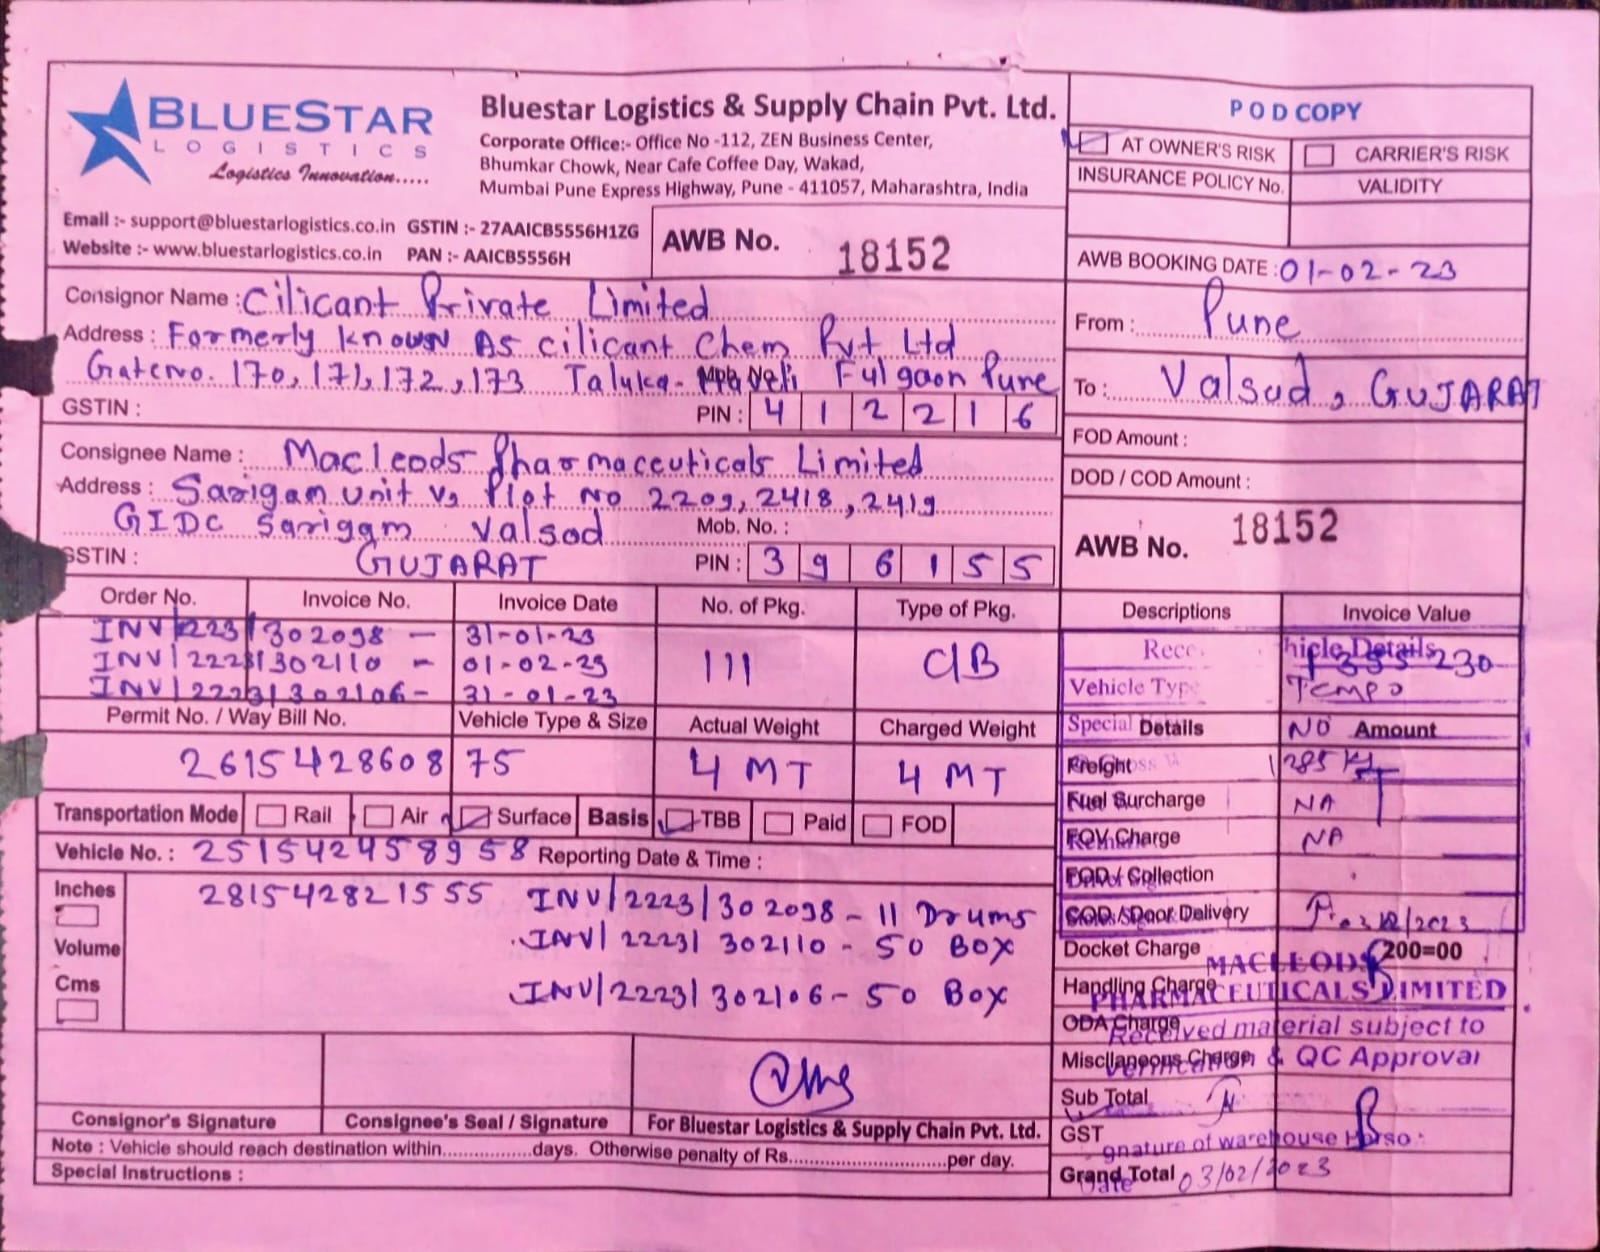 BLUESTAR
LOGISTICS
Logistics Innovation.....
Bluestar Logistics & Supply Chain Pvt. Ltd.
Corporate Office:- Office No -112, ZEN Business Center,
Bhumkar Chowk, Near Cafe Coffee Day, Wakad,
Mumbai Pune Express Highway, Pune - 411057, Maharashtra, India
Email :- support@bluestarlogistics.co.in GSTIN :- 27AAICB5556H1ZG
Website :- www.bluestarlogistics.co.in PAN :- AAICB5556H
AWB No. 18152
POD COPY
AT OWNER'S RISK CARRIER'S RISK
INSURANCE POLICY No. VALIDITY
AWB BOOKING DATE : 01-02-23
From : Pune
To : Valsad, GUJARAT
FOD Amount :
DOD / COD Amount :
AWB No. 18152
Consignor Name : Cilicant Private Limited
Address : Formerly known As cilicant Chem Pvt Ltd
Gate No. 170, 171, 172, 173 Taluka- Haveli Fulgaon Pune
GSTIN : PIN : 412216
Consignee Name : Macleods Pharmaceuticals Limited
Address : Sarigam unit V, Plot No 2209, 2418, 2419
GIDC Sarigam Valsad Mob. No. :
GSTIN : GUJARAT PIN : 396155
Order No. Invoice No. Invoice Date No. of Pkg. Type of Pkg.
INV/2223/302098 - 31-01-23
INV/2223/302110 - 01-02-23 111 C/B
INV/2223/302106 - 31-01-23
Permit No. / Way Bill No. Vehicle Type & Size Actual Weight Charged Weight
261542860875 4 MT 4 MT
Transportation Mode Rail Air Surface Basis TBB Paid FOD
Vehicle No. : 251542458958 Reporting Date & Time :
Inches
Volume
Cms
281542821555 INV/2223/302098 - 11 Drums
INV/2223/302110 - 50 BOX
INV/2223/302106 - 50 BOX
Consignor's Signature Consignee's Seal / Signature For Bluestar Logistics & Supply Chain Pvt. Ltd.
Note : Vehicle should reach destination within................days. Otherwise penalty of Rs.......................per day.
Special Instructions :
Descriptions Invoice Value
Vehicle Type Tempo
Special Details NO Amount
Freight
Fuel Surcharge NA
FOV Charge NA
FOD / Collection
COD / Door Delivery
Docket Charge 200=00
Handling Charge
ODA Charge
Miscllaneous Charge
Sub Total
GST
Grand Total
MACLEODS
PHARMACEUTICALS LIMITED
Received material subject to
Verification & QC Approval
Date 03/02/2023